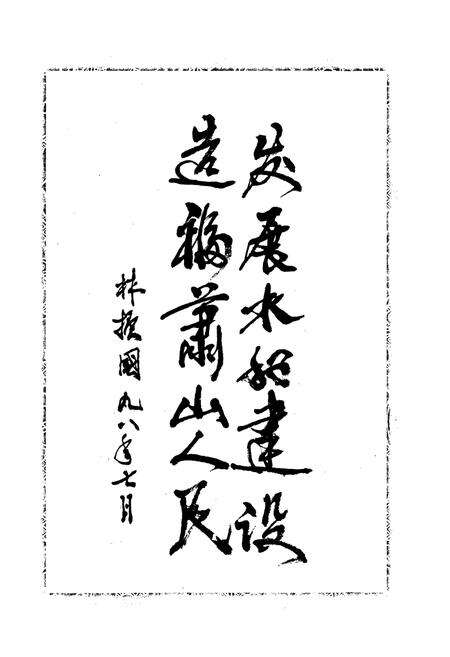 发展水利建设
造福萧山人民
林振國九八年七月